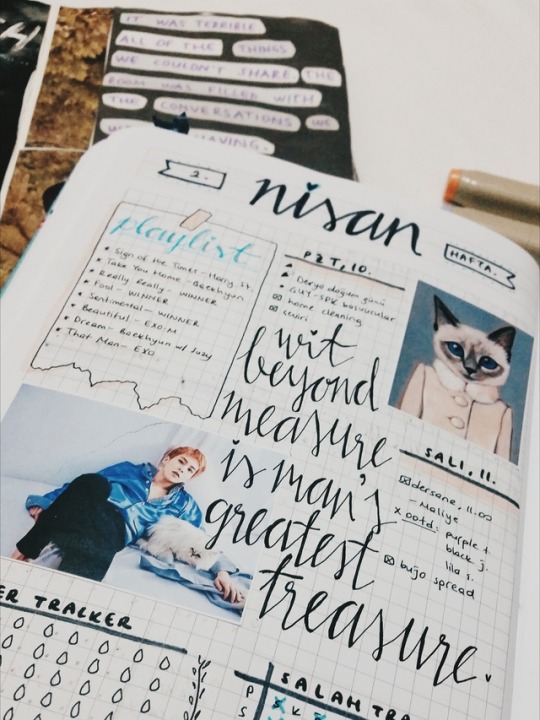 IT WAS TERRIBLE
ALL OF THE THINGS
WE COULDN'T SHARE THE
ROOM WAS FILLED WITH
THE CONVERSATIONS WE
HAVING.
2.
nisan
HAFTA.
playlist
• Sign of the Times - Harry St.
• Take You Home - Baekhyun
• Really Really - WINNER
• Fool - WINNER
• Sentimental - WINNER
• Beautiful - EXO:M
• Dream - Baekhyun w/ Suzy
• That Man - EXO
PZT, 10.
Derya doğum günü
home cleaning
çeviri
wit
beyond
measure
is man's
greatest
treasure.
SALI, 11.
dersane, 11.00
- Maliye
x ootd: purple t.
black j.
lila s.
bujo spread
ER TRACKER
SALAH TRA
P
S